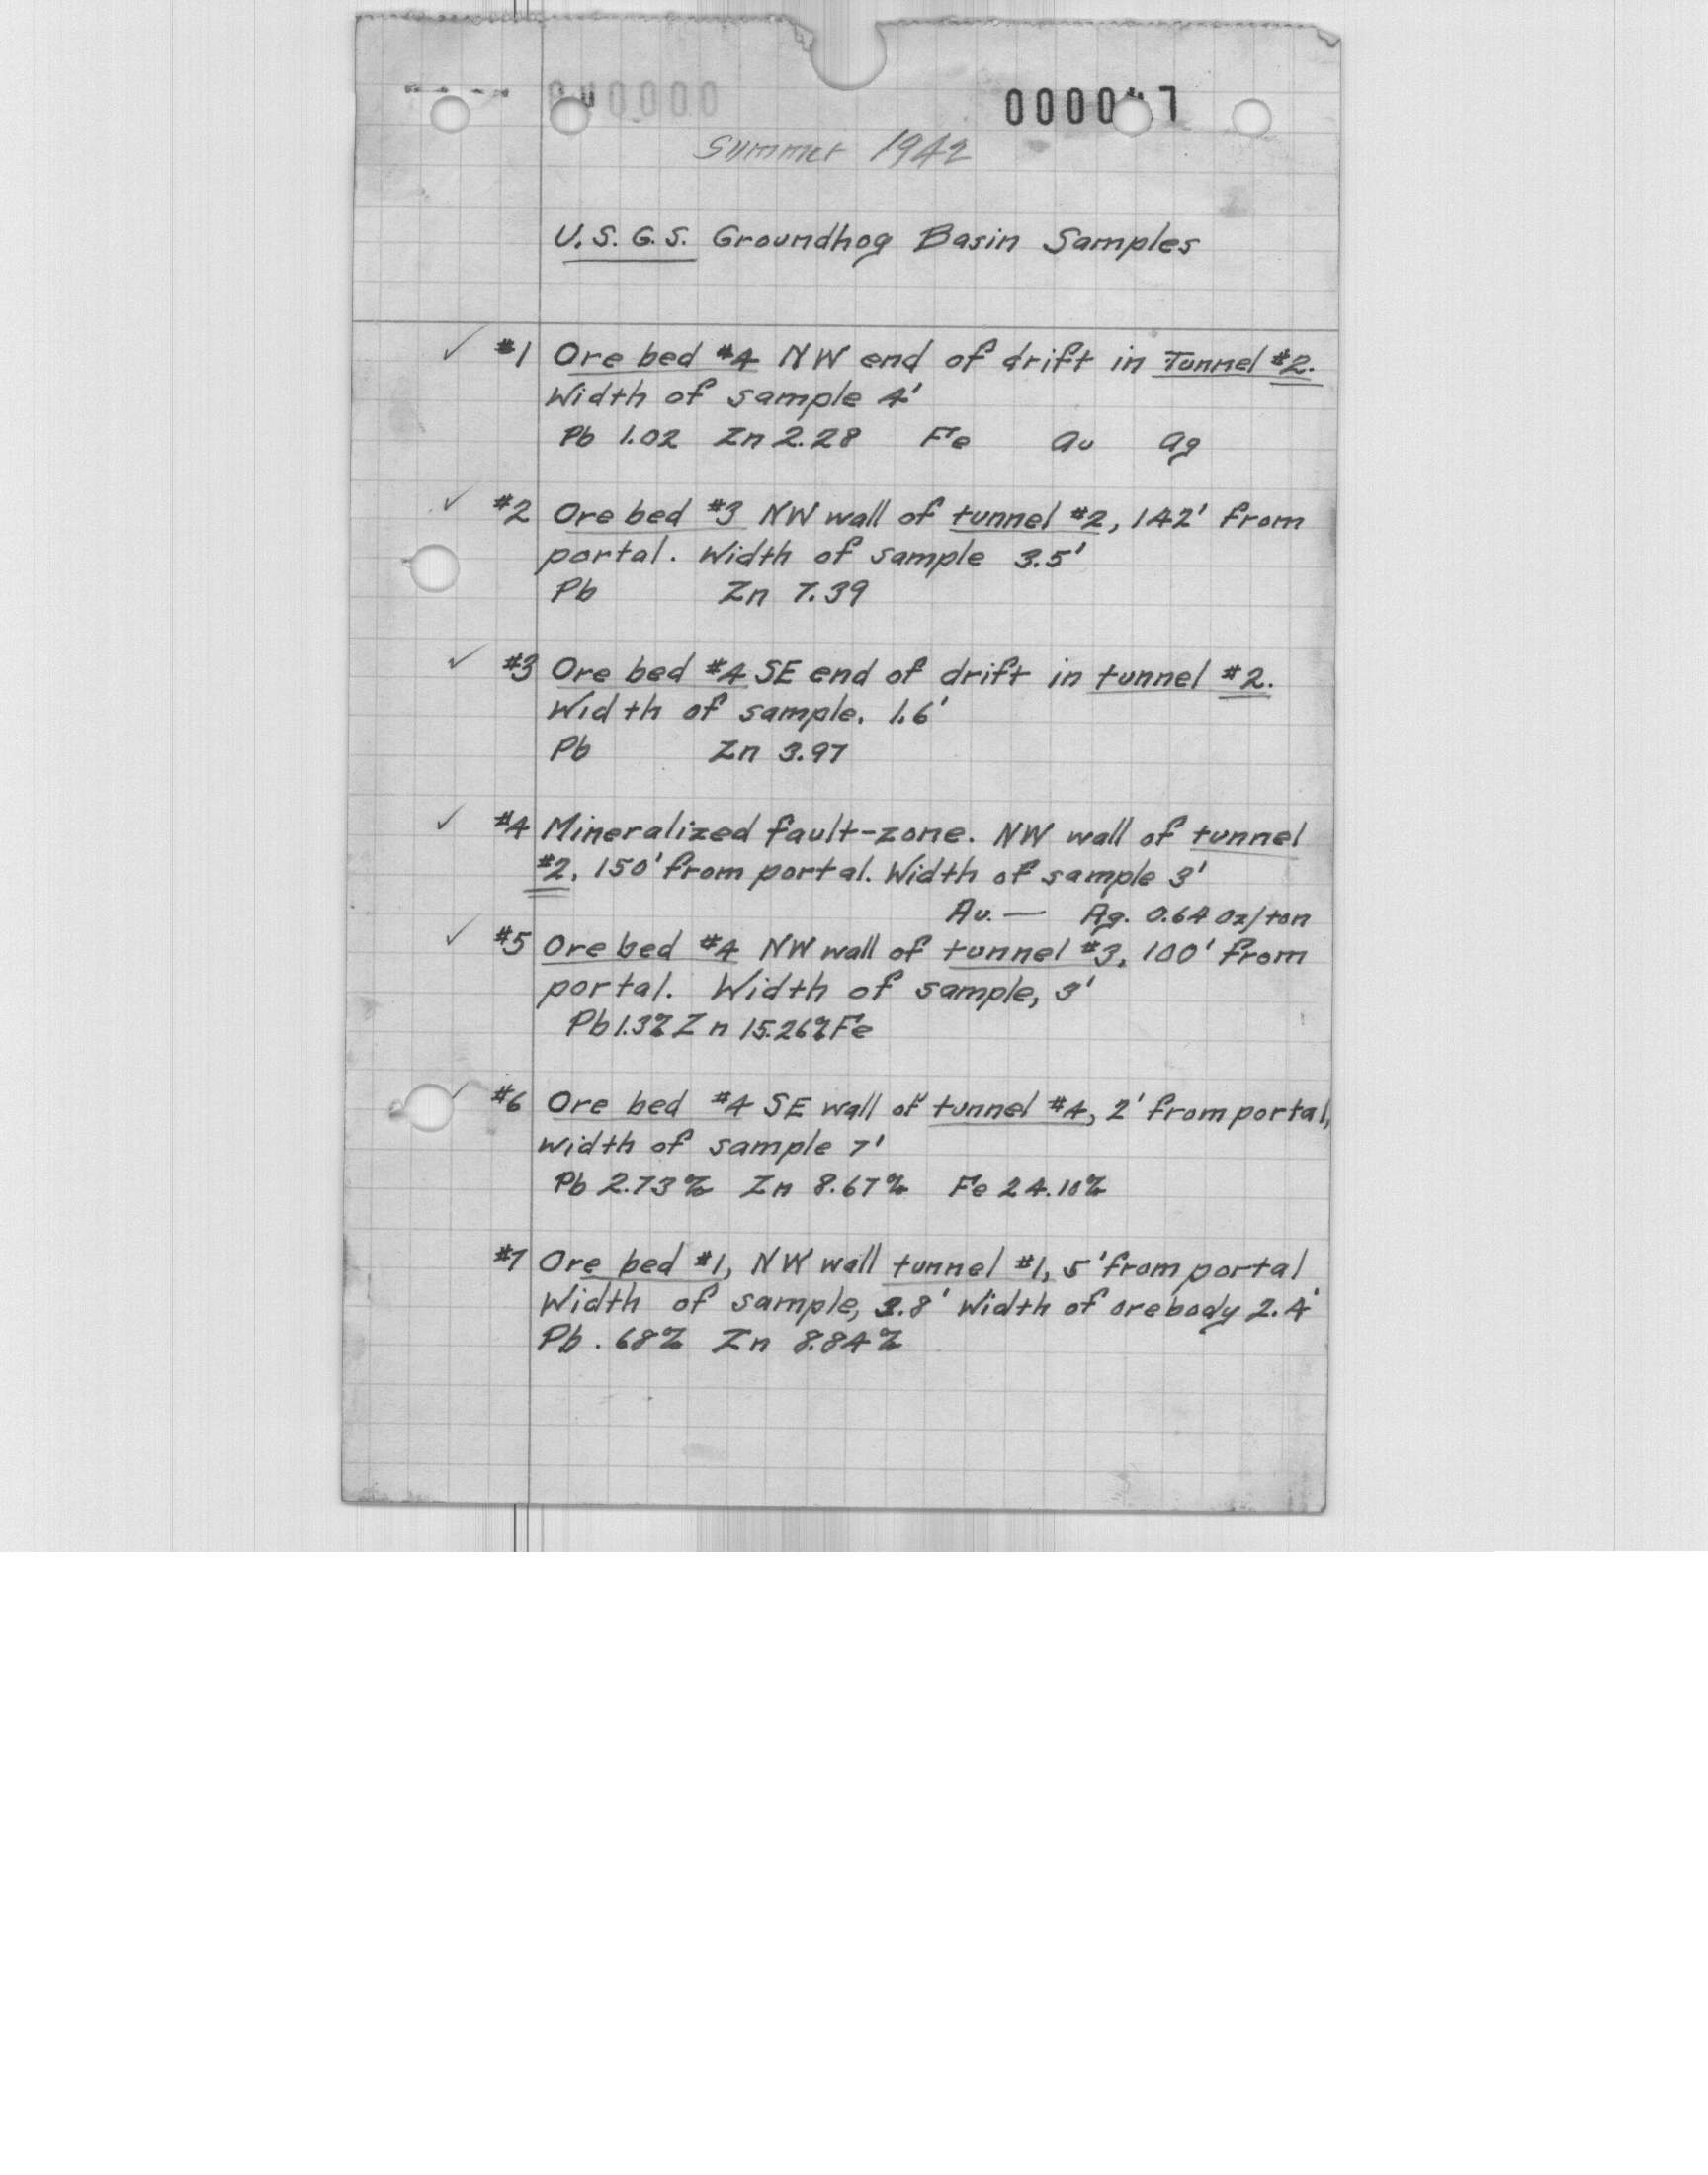 000000
Summer 1942
U.S.G.S. Groundhog Basin Samples
✓ #1 Ore bed #4 NW end of drift in Tunnel #2.
Width of sample 4'
Pb 1.02 Zn 2.28 Fe Au Ag
✓ #2 Ore bed #3 NW wall of tunnel #2, 142' from
portal. Width of sample 3.5'
Pb Zn 7.39
✓ #3 Ore bed #4 SE end of drift in tunnel #2.
Width of sample. 1.6'
Pb Zn 3.97
✓ #4 Mineralized fault-zone. NW wall of tunnel
#2, 150' from portal. Width of sample 3'
Au. — Ag. 0.64 oz/ton
✓ #5 Ore bed #4 NW wall of tunnel #3, 100' from
portal. Width of sample, 3'
Pb 1.3% Zn 15.26% Fe
✓ #6 Ore bed #4 SE wall of tunnel #4, 2' from portal,
width of sample 7'
Pb 2.73% Zn 8.67% Fe 24.10%
#7 Ore bed #1, NW wall tunnel #1, 5' from portal
Width of sample, 3.8' Width of orebody 2.4'
Pb .68% Zn 8.84%